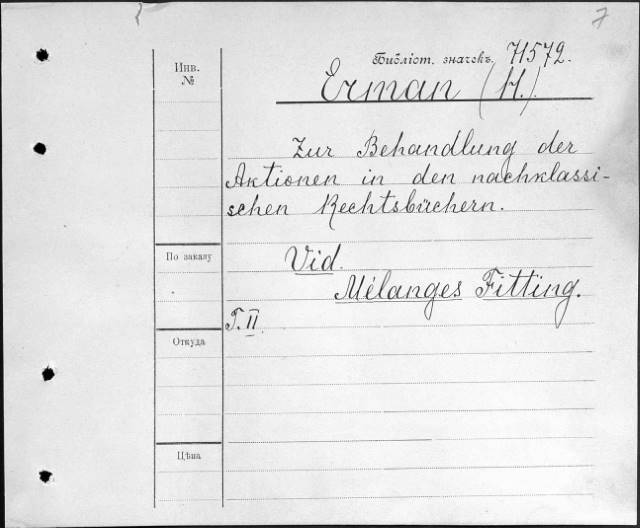 7
Инв.
№
Библіот. значекъ. 71572.
Erman (H.).
Zur Behandlung der
Aktionen in den nachklassi-
schen Rechtsbüchern.
По заказу
Vid.
Mélanges Fitting.
T. II.
Откуда
Цѣна